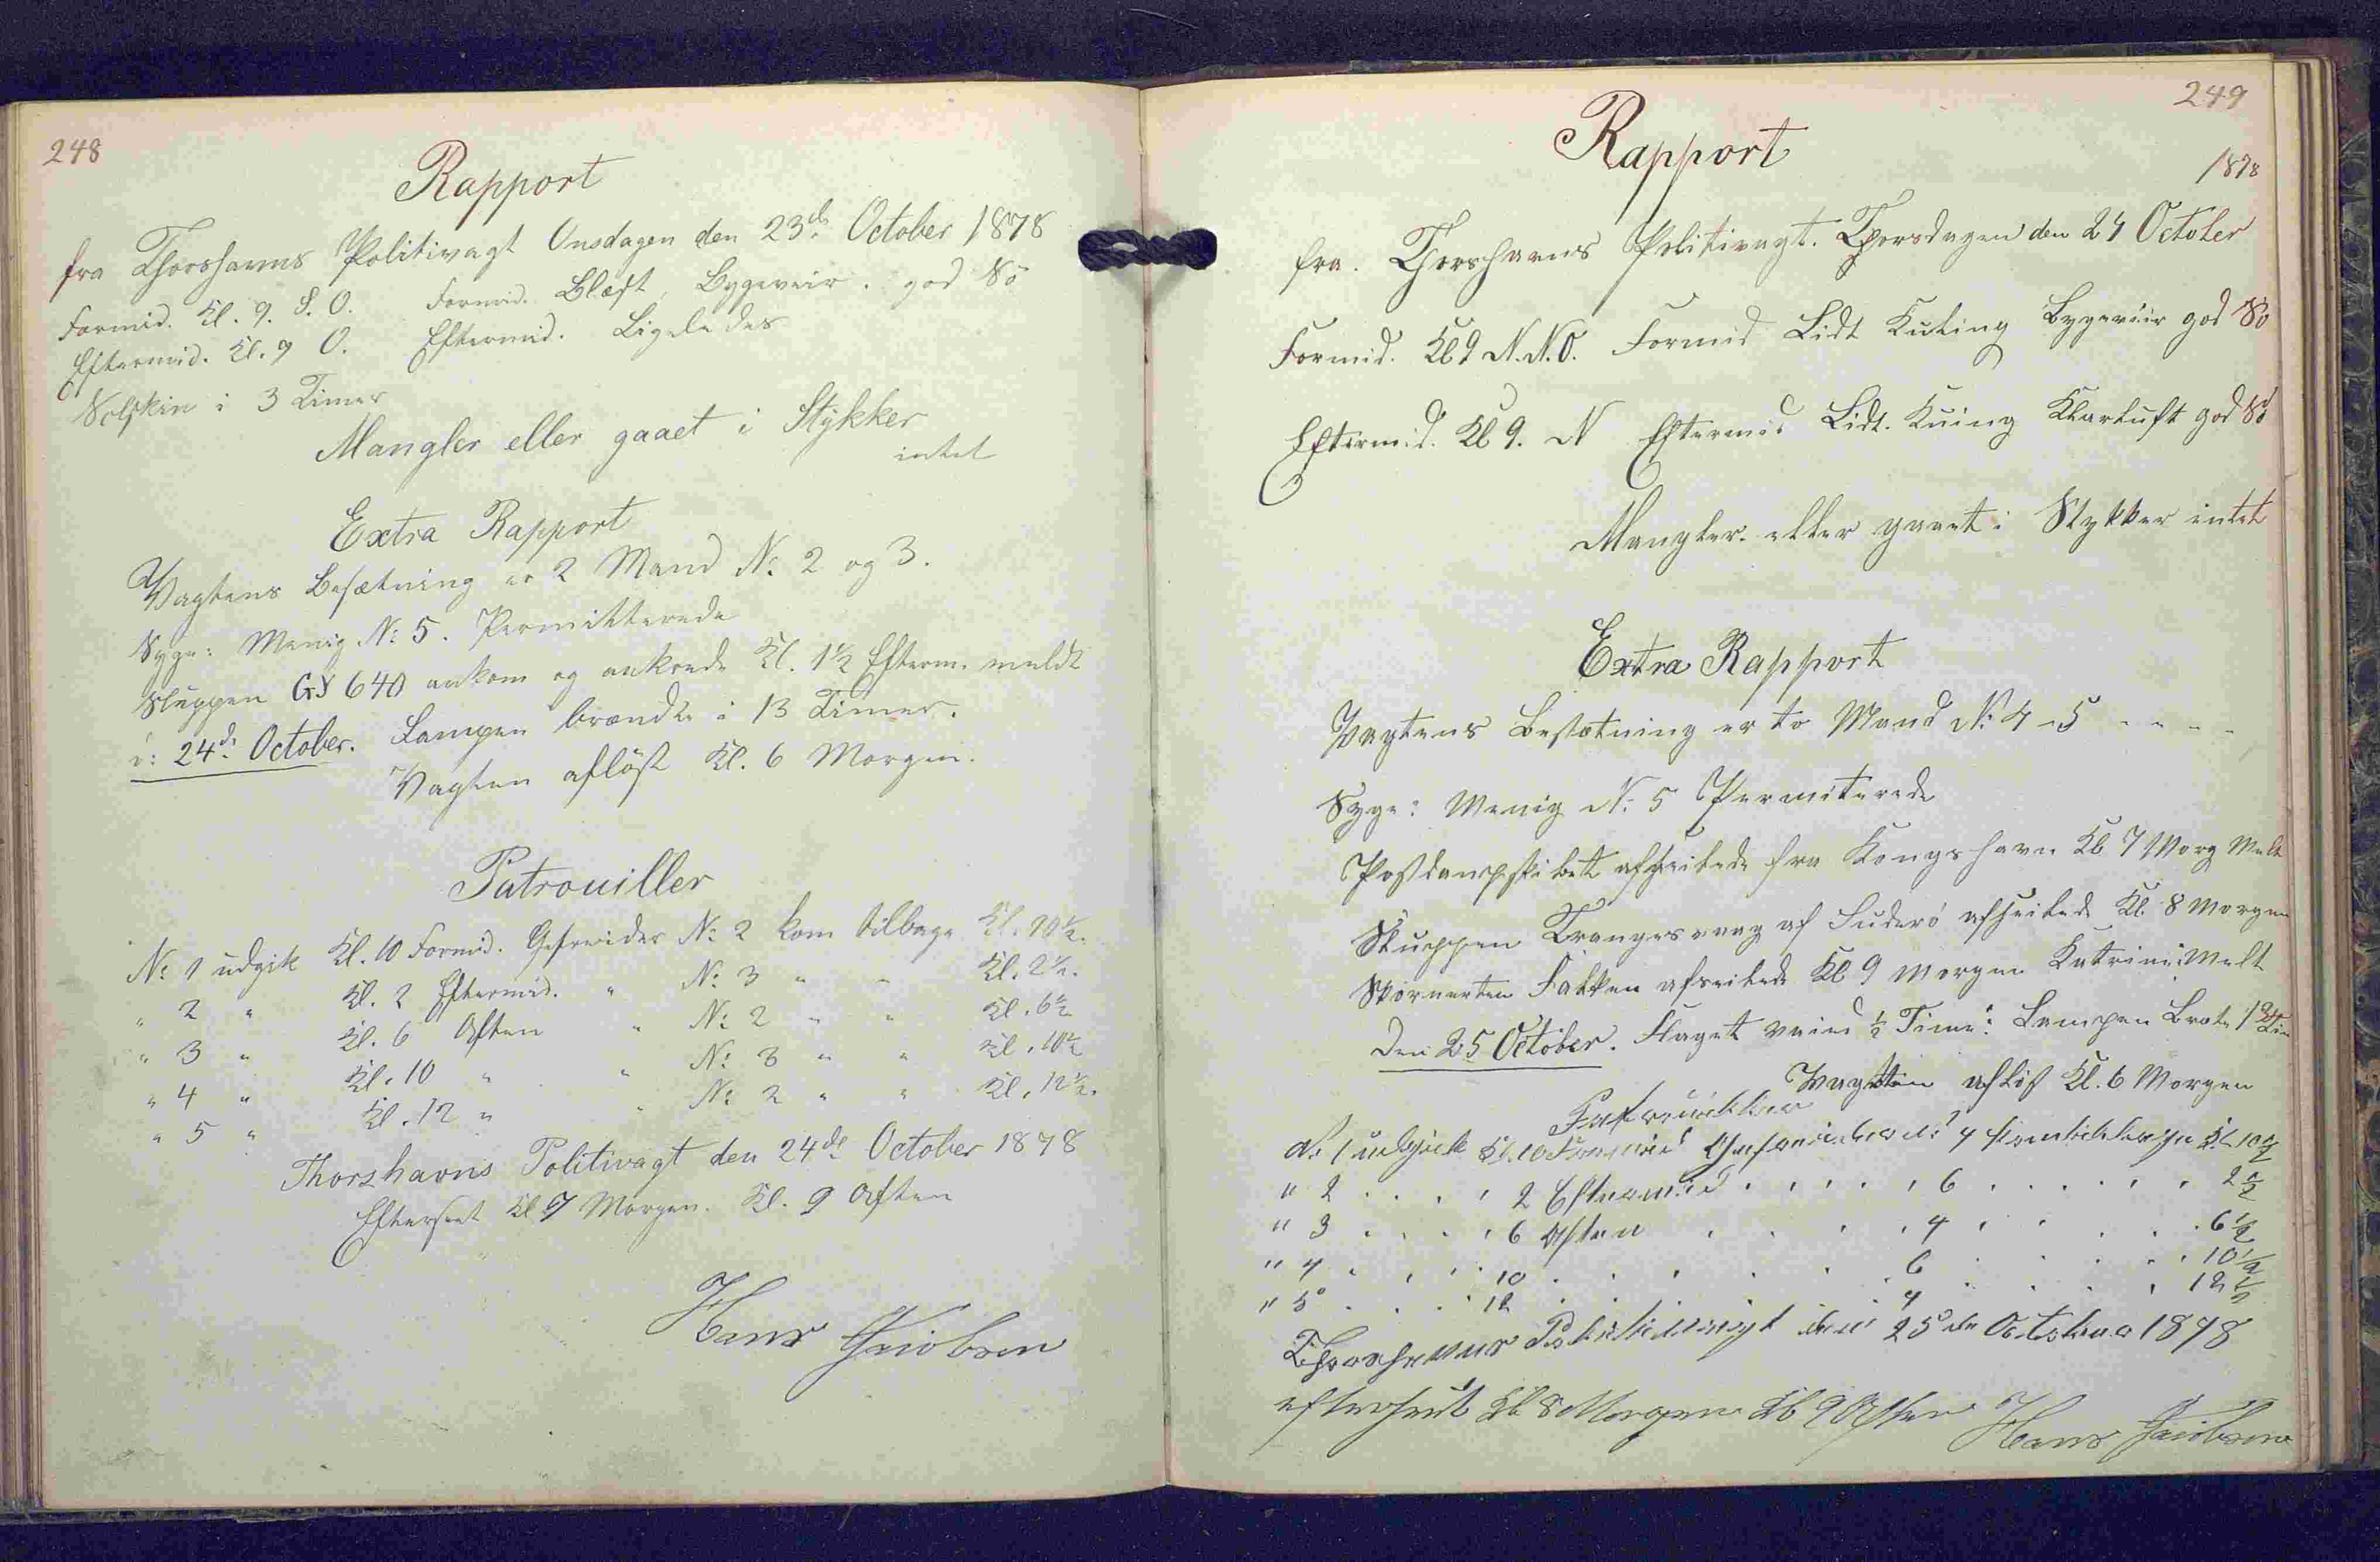 248
Rapport
fra Thorshavns Politivagt Onsdagen den 23de October 1878
Formid. Kl. 9. S. O. Formid. Blæst, Bygeveir. god Sö
Eftermid. Kl. 9 O. Eftermid. Ligeledes
Solskin i 3 Timer
Mangler eller gaaet i Stykker
intet
Extra Rapport
Vagtens Besætning er 2 Mand No 2 og 3.
Syge: Menig No 5. Permitterede
Sluppen GY 640 ankom og ankrede Kl. 1½ Efterm. meldt
d: 24de October. Lampen brændte i 13 Timer.
Vagten aflöst Kl. 6 Morgen.
Patrouiller
No 1 udgik Kl. 10 Formid. Gefreider No 2 kom tilbage Kl. 10½.
" 2 " Kl. 2 Eftermid. " No 3 " " Kl. 2½.
" 3 " Kl. 6 Aften " No 2 " " Kl. 6½
" 4 " Kl. 10 " " No 3 " " Kl. 10½
" 5 " Kl. 12 " " No 2 " " Kl. 12½.
Thorshavns Politivagt den 24de October 1878
Efterseet Kl 7 Morgen. Kl. 9 Aften
Hans Jacobsen
249
Rapport
1878
fra. Thorshavns Politivagt. Thorsdagen den 24 October
Formid. Kl 9 N.N.O. Formid Lidt Kuling Bygeveir god Sö
Eftermid. Kl 9. N Eftermid Lidt. Kuing Klarluft god Sö
Mangler. eller gaaet i Stykker intet
Extra Rapport
Vagtens Besætning er to Mand No 4 - 5 - - - -
Syge: Menig No 5 Permiterede
Postdampskibet afseilede fra Kongshavn Kl 7 Morg Melt
Sluppen Trangesvaag af Suderö afseilede Kl. 8 Morgen
Skonnerten Falken afseilede Kl 9 Morgen Melt
Den 25 October. Flaget veied ½ Time: Lampen
Vagten aflöst Kl. 6 Morgen
Patrouiller
No 1 udgick Kl. 10 Formid Gefreider No 4 kom tilbage Kl 10½
" 2 . . . . 2 Eftermid . . . . . 6 . . . . . . 2½
" 3 . . . . 6 Aften . . . . 4 . . . . 6½
" 4 . . . . 10 . . . . . 6 . . . . 10½
" 5 . . . . 12 . . . . . 4 . . . . 12½
Thorshavns Politivagt den 25de October 1878
efterseet Kl 8 Morgen Kl 9 Aften Hans Jacobsen